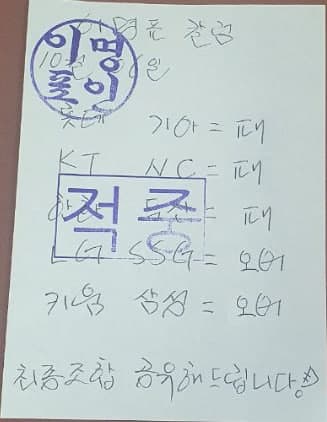 이명훈 칼럼
10월 06일
롯데 기아 = 패
KT NC = 패
한화 두산 = 패
LG SSG = 오버
키움 삼성 = 오버
최종조합 공유해드립니다!
적중